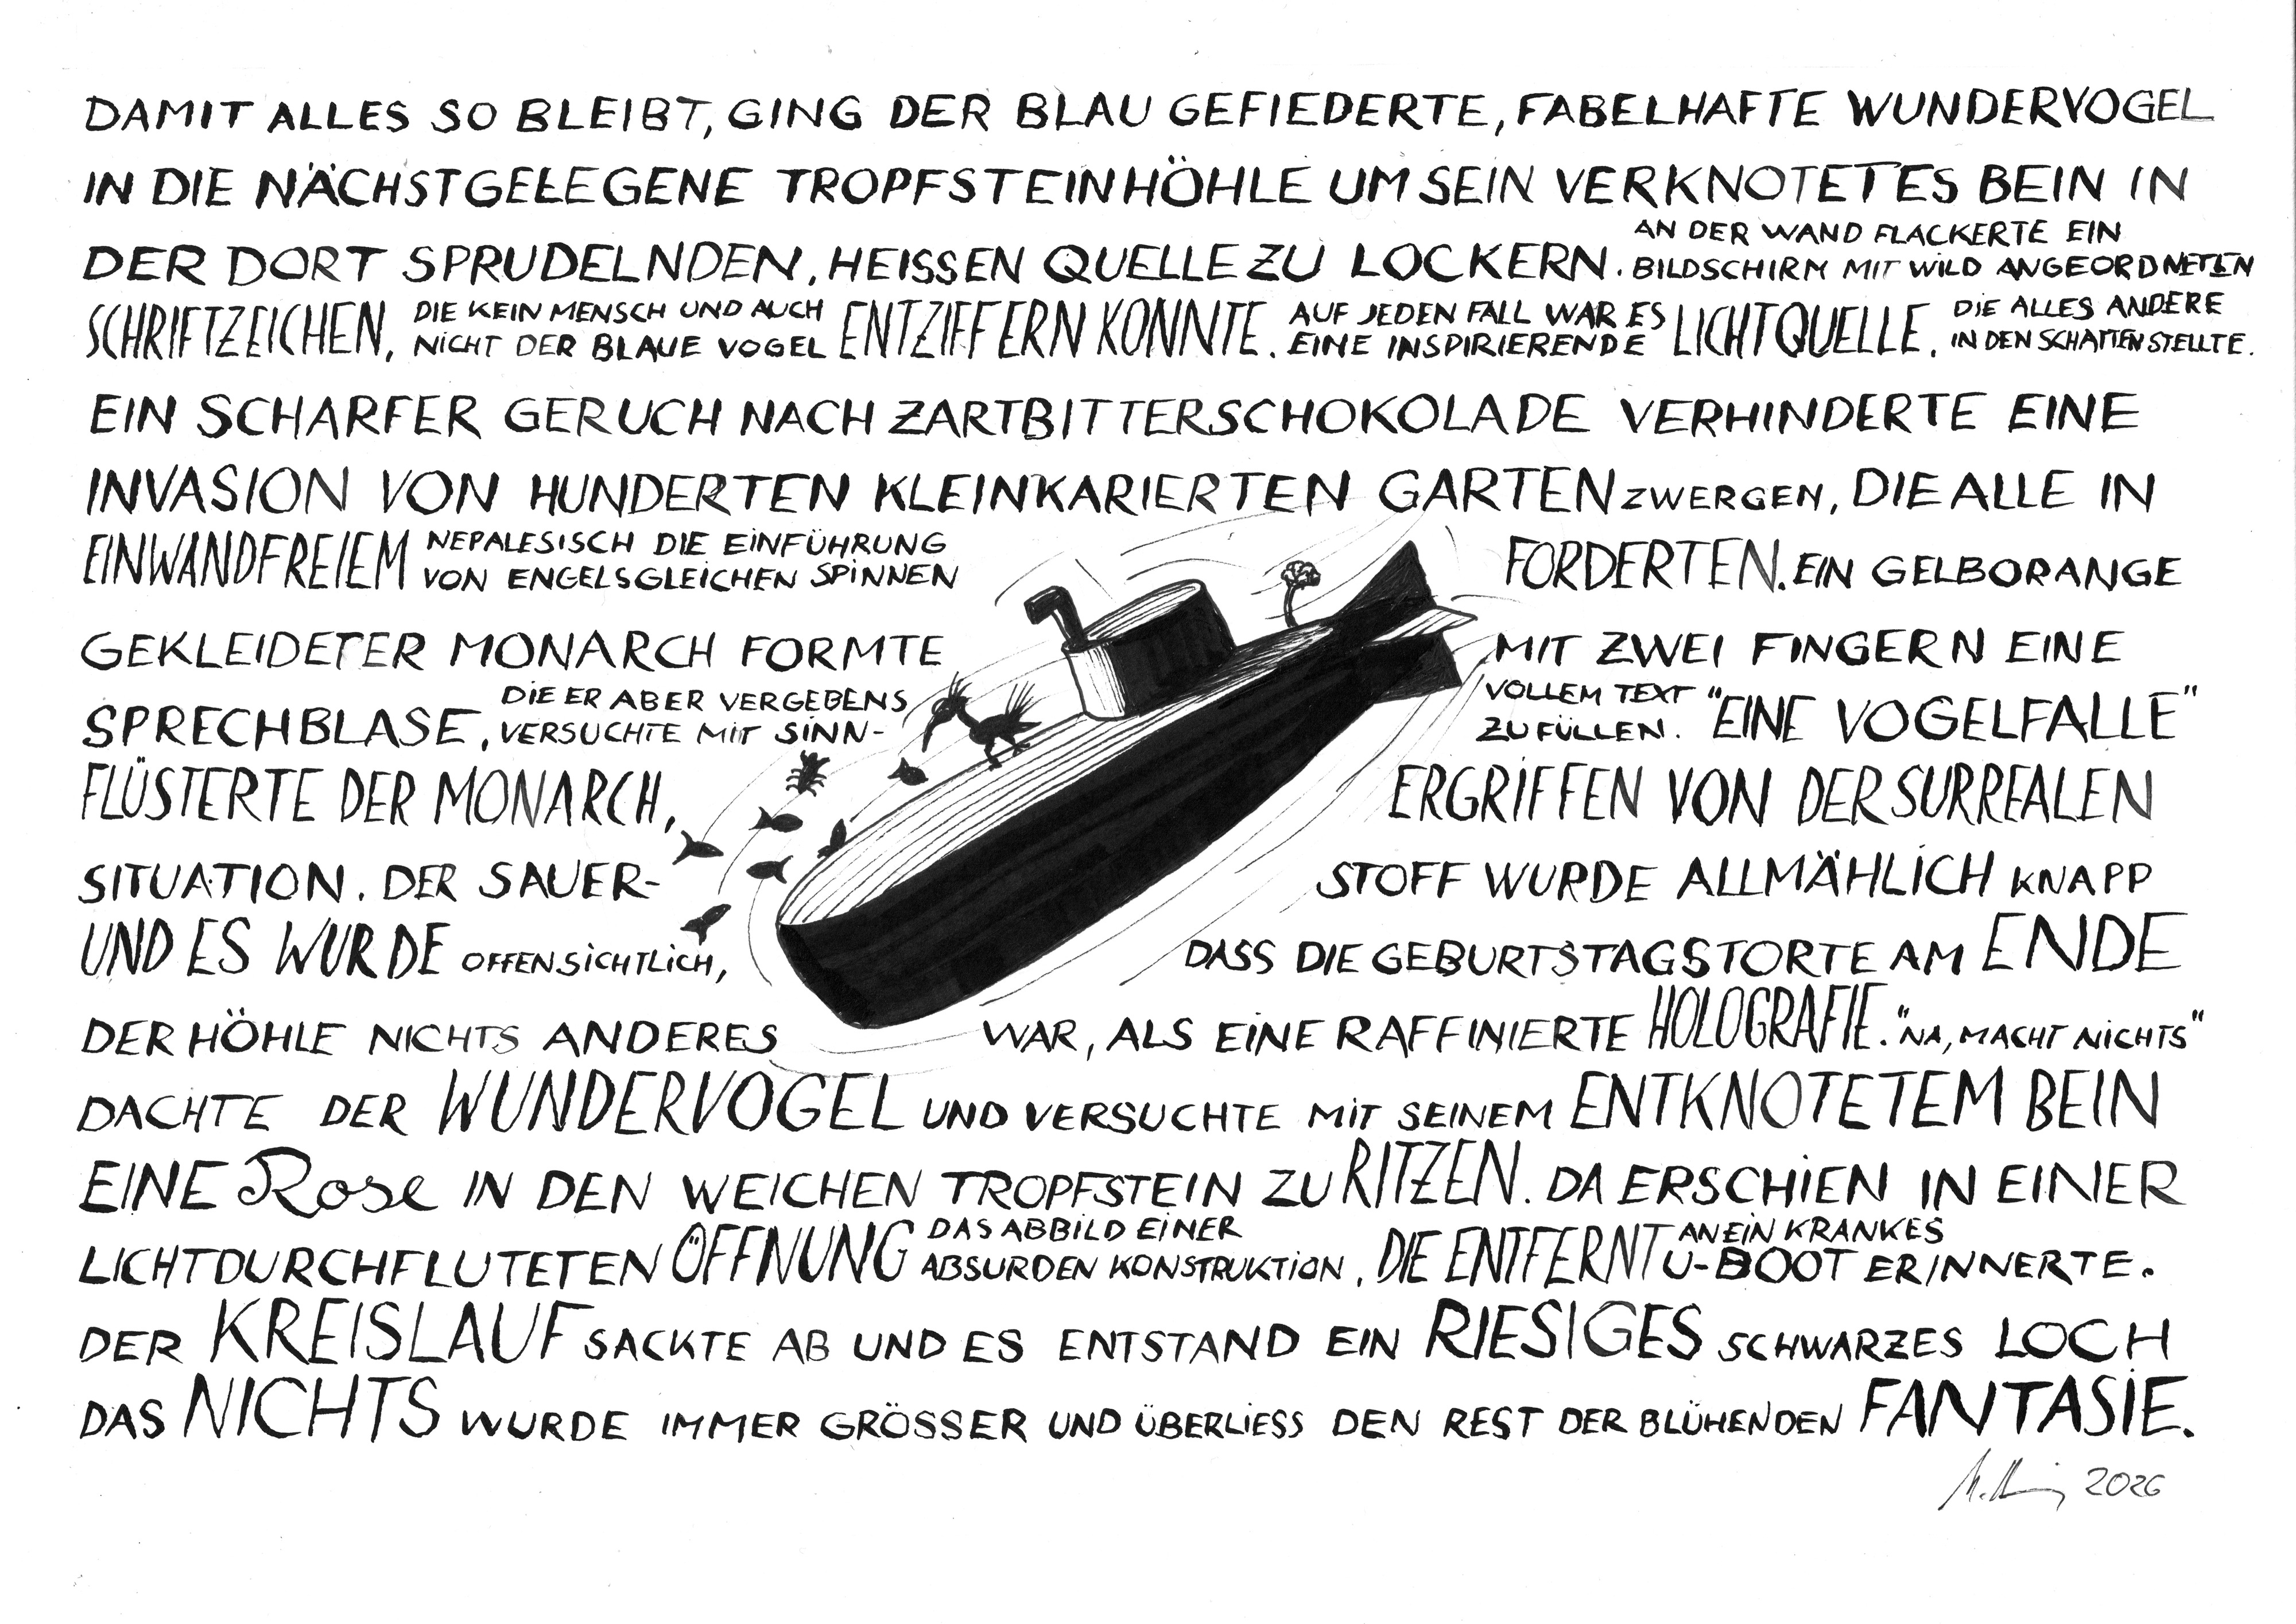 DAMIT ALLES SO BLEIBT, GING DER BLAU GEFIEDERTE, FABELHAFTE WUNDERVOGEL
IN DIE NÄCHSTGELEGENE TROPFSTEINHÖHLE UM SEIN VERKNOTETES BEIN IN
DER DORT SPRUDELNDEN, HEISSEN QUELLE ZU LOCKERN. AN DER WAND FLACKERTE EIN
BILDSCHIRM MIT WILD ANGEORDNETEN
SCHRIFTZEICHEN, DIE KEIN MENSCH UND AUCH
NICHT DER BLAUE VOGEL ENTZIFFERN KONNTE. AUF JEDEN FALL WAR ES
EINE INSPIRIERENDE LICHTQUELLE, DIE ALLES ANDERE
IN DEN SCHATTEN STELLTE.
EIN SCHARFER GERUCH NACH ZARTBITTERSCHOKOLADE VERHINDERTE EINE
INVASION VON HUNDERTEN KLEINKARIERTEN GARTENZWERGEN, DIE ALLE IN
EINWANDFREIEM NEPALESISCH DIE EINFÜHRUNG
VON ENGELSGLEICHEN SPINNEN FORDERTEN. EIN GELBORANGE
GEKLEIDETER MONARCH FORMTE MIT ZWEI FINGERN EINE
SPRECHBLASE, DIE ER ABER VERGEBENS
VERSUCHTE MIT SINN-
VOLLEM TEXT
ZU FÜLLEN. "EINE VOGELFALLE"
FLÜSTERTE DER MONARCH, ERGRIFFEN VON DER SURREALEN
SITUATION. DER SAUER- STOFF WURDE ALLMÄHLICH KNAPP
UND ES WURDE OFFENSICHTLICH, DASS DIE GEBURTSTAGSTORTE AM ENDE
DER HÖHLE NICHTS ANDERES WAR, ALS EINE RAFFINIERTE HOLOGRAFIE. "NA, MACHT NICHTS"
DACHTE DER WUNDERVOGEL UND VERSUCHTE MIT SEINEM ENTKNOTETEM BEIN
EINE Rose IN DEN WEICHEN TROPFSTEIN ZU RITZEN. DA ERSCHIEN IN EINER
LICHTDURCHFLUTETEN ÖFFNUNG DAS ABBILD EINER
ABSURDEN KONSTRUKTION, DIE ENTFERNT AN EIN KRANKES
U-BOOT ERINNERTE.
DER KREISLAUF SACKTE AB UND ES ENTSTAND EIN RIESIGES SCHWARZES LOCH
DAS NICHTS WURDE IMMER GRÖSSER UND ÜBERLIESS DEN REST DER BLÜHENDEN FANTASIE.
2026